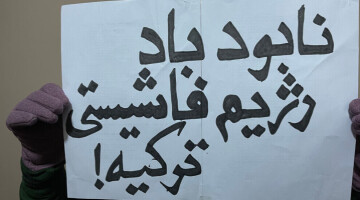 نابود باد
رژیم فاشیستی
ترکیه!